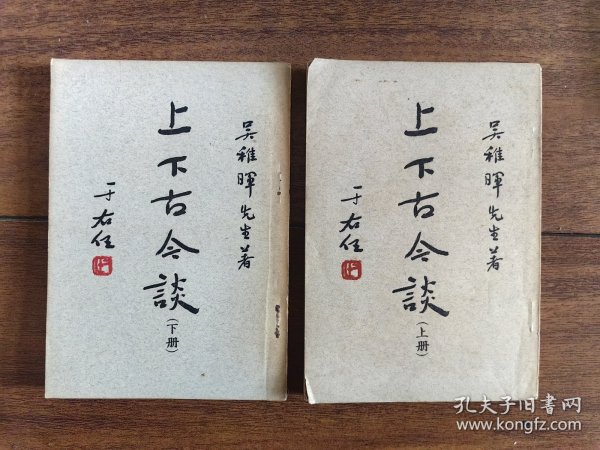 吴稚暉先生著
上下古今談
(下册)
于右任
吴稚暉先生著
上下古今談
(上册)
于右任
孔夫子旧書网
www.kongfz.com